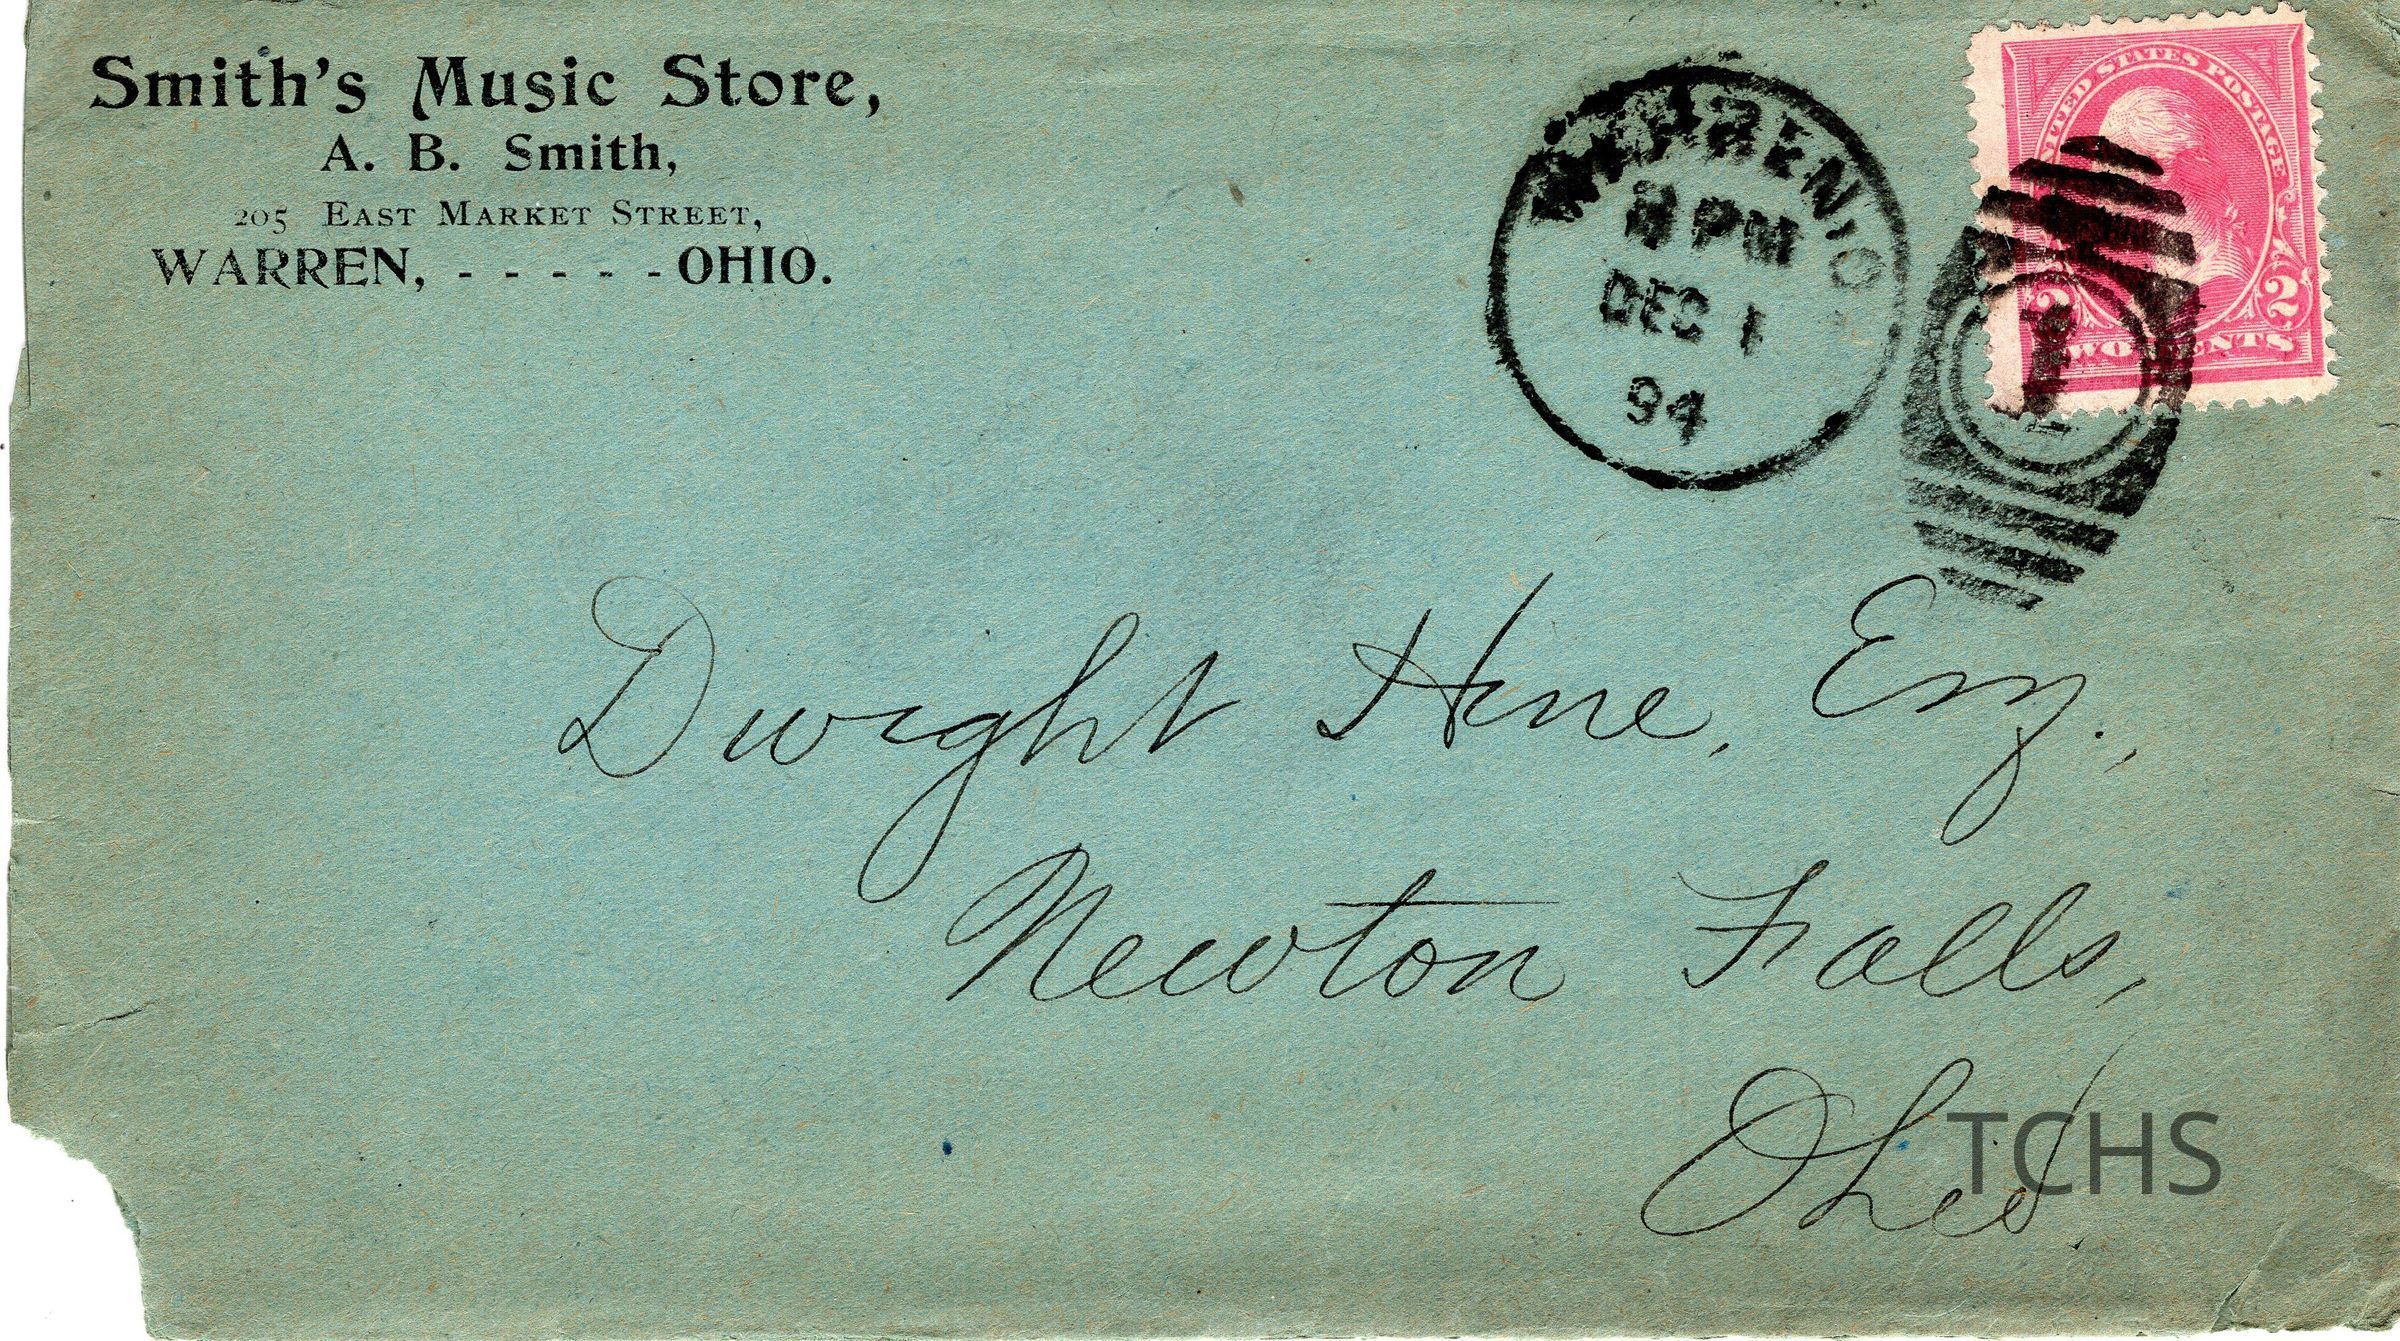 Smith's Music Store,
A. B. Smith,
205 East Market Street,
WARREN, - - - - - OHIO.
WARREN, O
PM
DEC 1
94
UNITED STATES POSTAGE
2 2
TWO CENTS
1
Dwight Hine, Esq.,
Newton Falls,
Ohio
TCHS